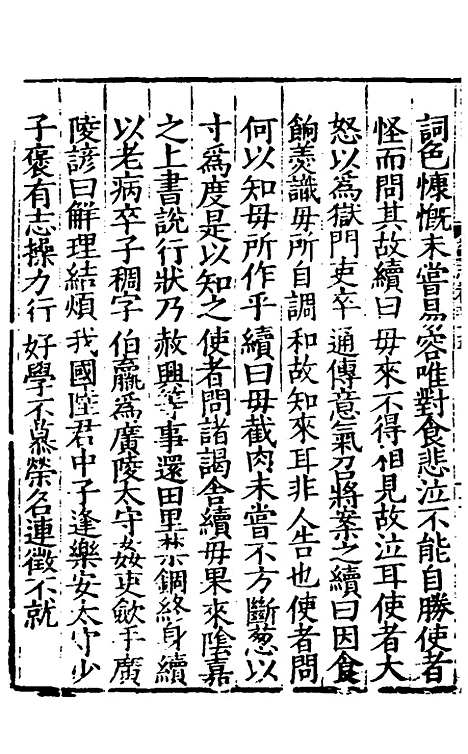 詞色慷慨未嘗易容唯對食悲泣不能自勝使者
怪而問其故續曰母來不得相見故泣耳使者大
怒以為獄門吏卒通傳意氣召將案之續曰因食
餉羹識母所自調和故知來耳非人告也使者問
何以知母所作乎續曰母截肉未嘗不方斷葱以
寸爲度是以知之使者問諸謁舍續母果來陰嘉
之上書說行狀乃赦興等事還田里禁錮終身續
以老病卒子稠字伯瀛爲廣陵太守姦吏歛手廣
陵諺曰解理結煩我國陸君中子逢樂安太守少
子褒有志操力行好學不慕榮名連徵不就